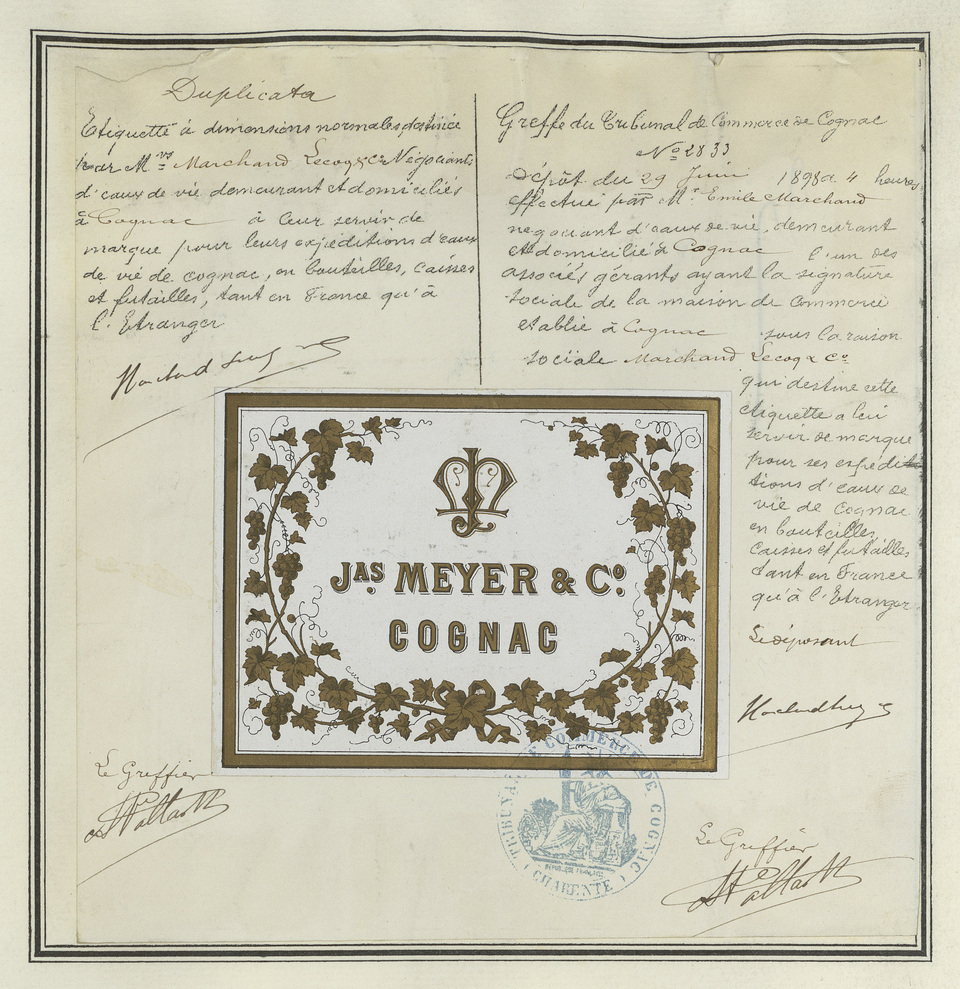 Duplicata
Etiquette à dimensions normales destinée
par Mrs Marchand Lecoq & Cie Négociants
d'eaux de vie demeurant et domiciliés
à Cognac à leur servir de
marque pour leurs expéditions d'eaux
de vie de cognac, en bouteilles, caisses
et futailles, tant en France qu'à
l'Etranger
Greffe du Tribunal de Commerce de Cognac
No 2833
Dépôt du 29 Juin 1898 à 4 heures
effectué par Mr Emile Marchand
negociant d'eaux de vie, demeurant
et domicilié à Cognac l'un des
associés, gérants ayant la signature
sociale de la maison de Commerce
etablie à Cognac sous la raison
sociale Marchand Lecoq & Co
qui destine cette
etiquette a lui
servir de marque
pour ses expédi-
tions d'eaux de
vie de Cognac
en bouteilles,
caisses et futailles
tant en France
qu'à l'Etranger
Le déposant
JM
JAS MEYER & Co.
COGNAC
Le Greffier
Le Greffier
TRIBUNAL DE COMMERCE DE COGNAC
CHARENTE